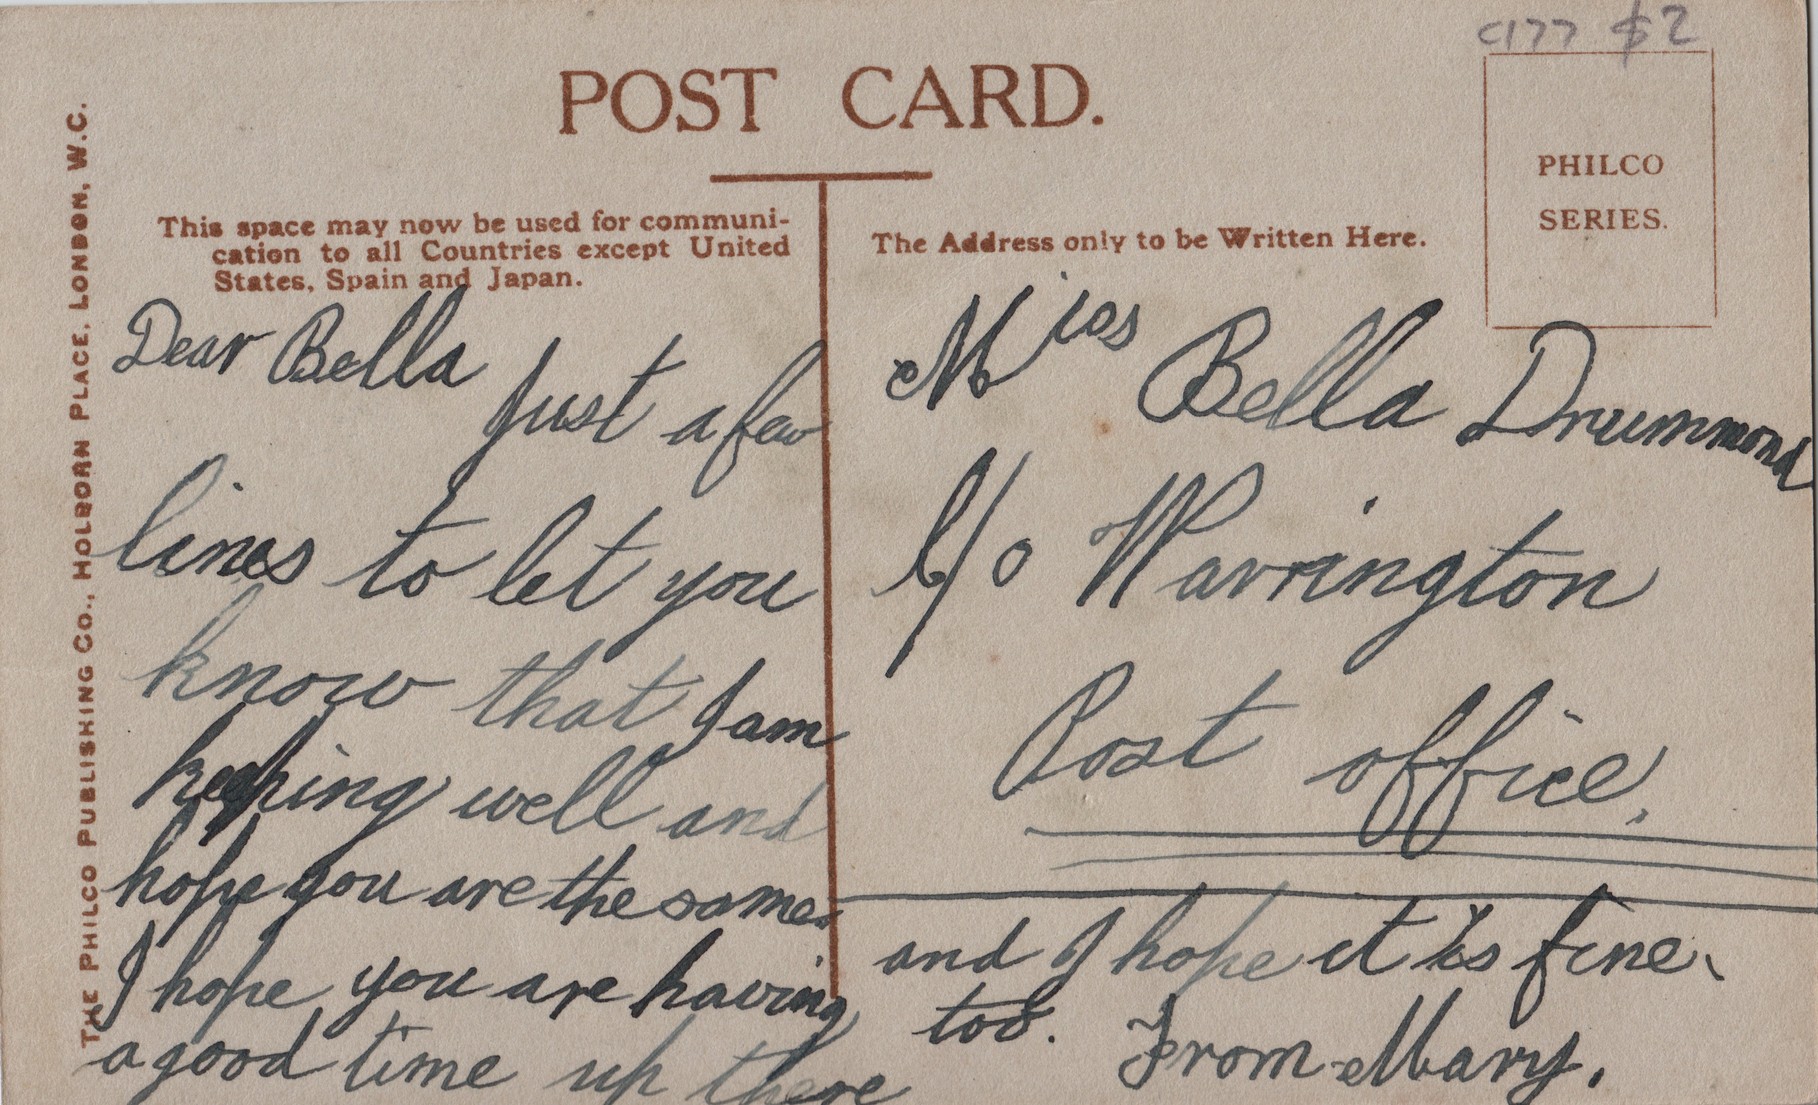 C177 $2
POST CARD.
THE PHILCO PUBLISHING CO., HOLBORN PLACE, LONDON, W.C.
This space may now be used for communi-
cation to all Countries except United
States, Spain and Japan.
The Address only to be Written Here.
PHILCO
SERIES.
Dear Bella
Just a few
lines to let you
know that I am
keeping well and
hope you are the same.
I hope you are having
a good time up there
and I hope it is fine
too. From Mary.
Miss Bella Drummond
C/o Warrington
Post office.